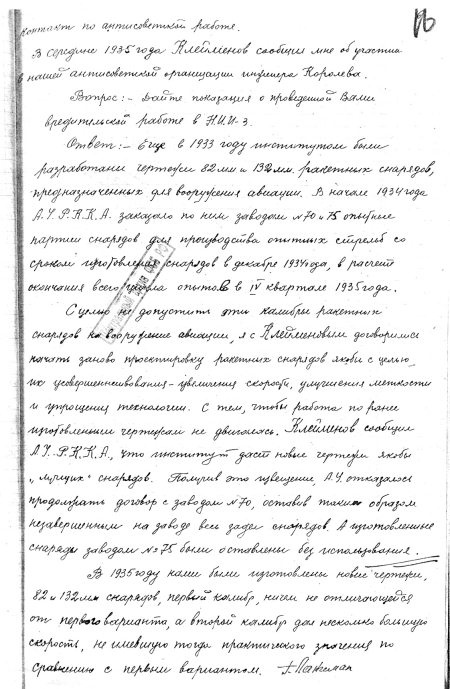 контакт по антисоветской работе.
В середине 1935 года Клейменов сообщил мне об участии
в нашей антисоветской организации инженера Королева.
Вопрос:- Дайте показания о проведенной Вами
вредительской работе в Н.И.И-3.
Ответ:- Еще в 1933 году институтом были
разработаны чертежи 82 мм и 132 мм. ракетных снарядов,
предназначенных для вооружения авиации. В начале 1934 года
А.У. Р.К.К.А. заказало по ним заводам №70 и 75 опытные
партии снарядов для производства опытных стрельб со
сроком изготовления снарядов в декабре 1934 года, в расчете
окончания всего цикла опытов в IV квартале 1935 года.
С целью не допустить эти калибры ракетных
снарядов на вооружение авиации, я с Клейменовым договорились
начать заново проектировку ракетных снарядов якобы с целью
их усовершенствования - увеличения скорости, улучшения меткости
и упрощения технологии. С тем, чтобы работа по ранее
изготовленным чертежам не двигалась, Клейменов сообщил
А.У. Р.К.К.А., что институт даст новые чертежи якобы
„лучших" снарядов. Получив это извещение, А.У. отказалось
продолжать договор с заводом №70, оставив таким образом
незавершенным на заводе весь задел снарядов. А изготовленные
снаряды заводом №75 были оставлены без использования.
В 1935 году нами были изготовлены новые чертежи,
82 и 132 мм снарядов, первый калибр, ничем не отличающейся
от первого варианта, а второй калибр дал несколько большую
скорость, не имевшую тогда практического значения по
сравнению с первым вариантом. Г. Лангемак